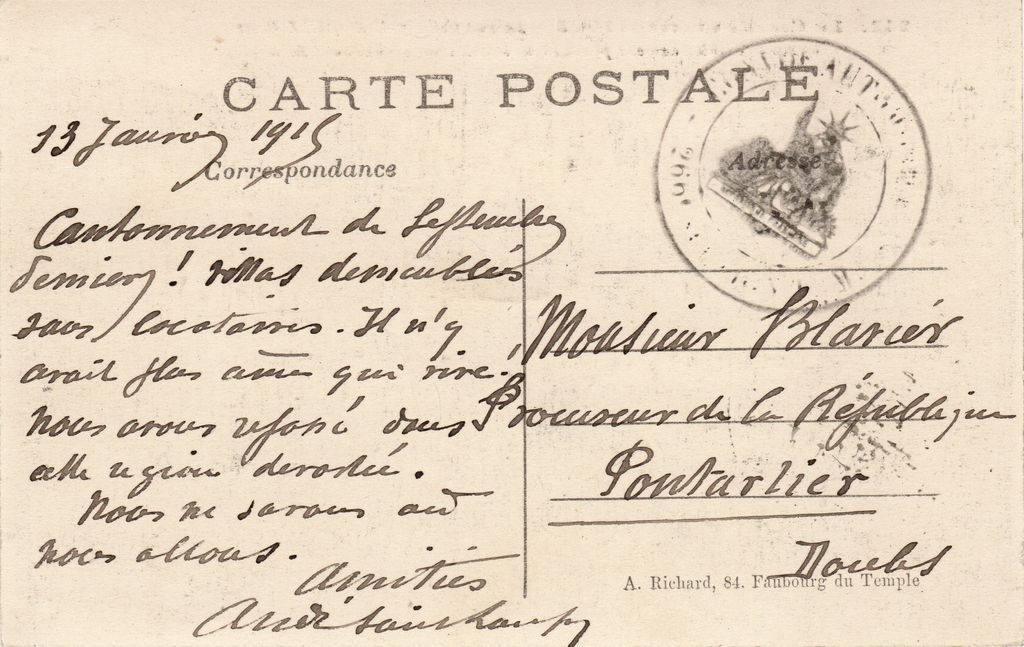 CARTE POSTALE
13 Janvier 1915
Correspondance
Adresse
Cantonnement de Septembre
dernier ! villas demeublées
sans locataires. Il n'y
avait plus âme qui vive !
Nous avons repassé dans
cette region devastée.
Nous ne savons où
nous allons.
Amitiés
André
Monsieur Blavier
Procureur de la République
Pontarlier
Doubs
A. Richard, 84. Faubourg du Temple